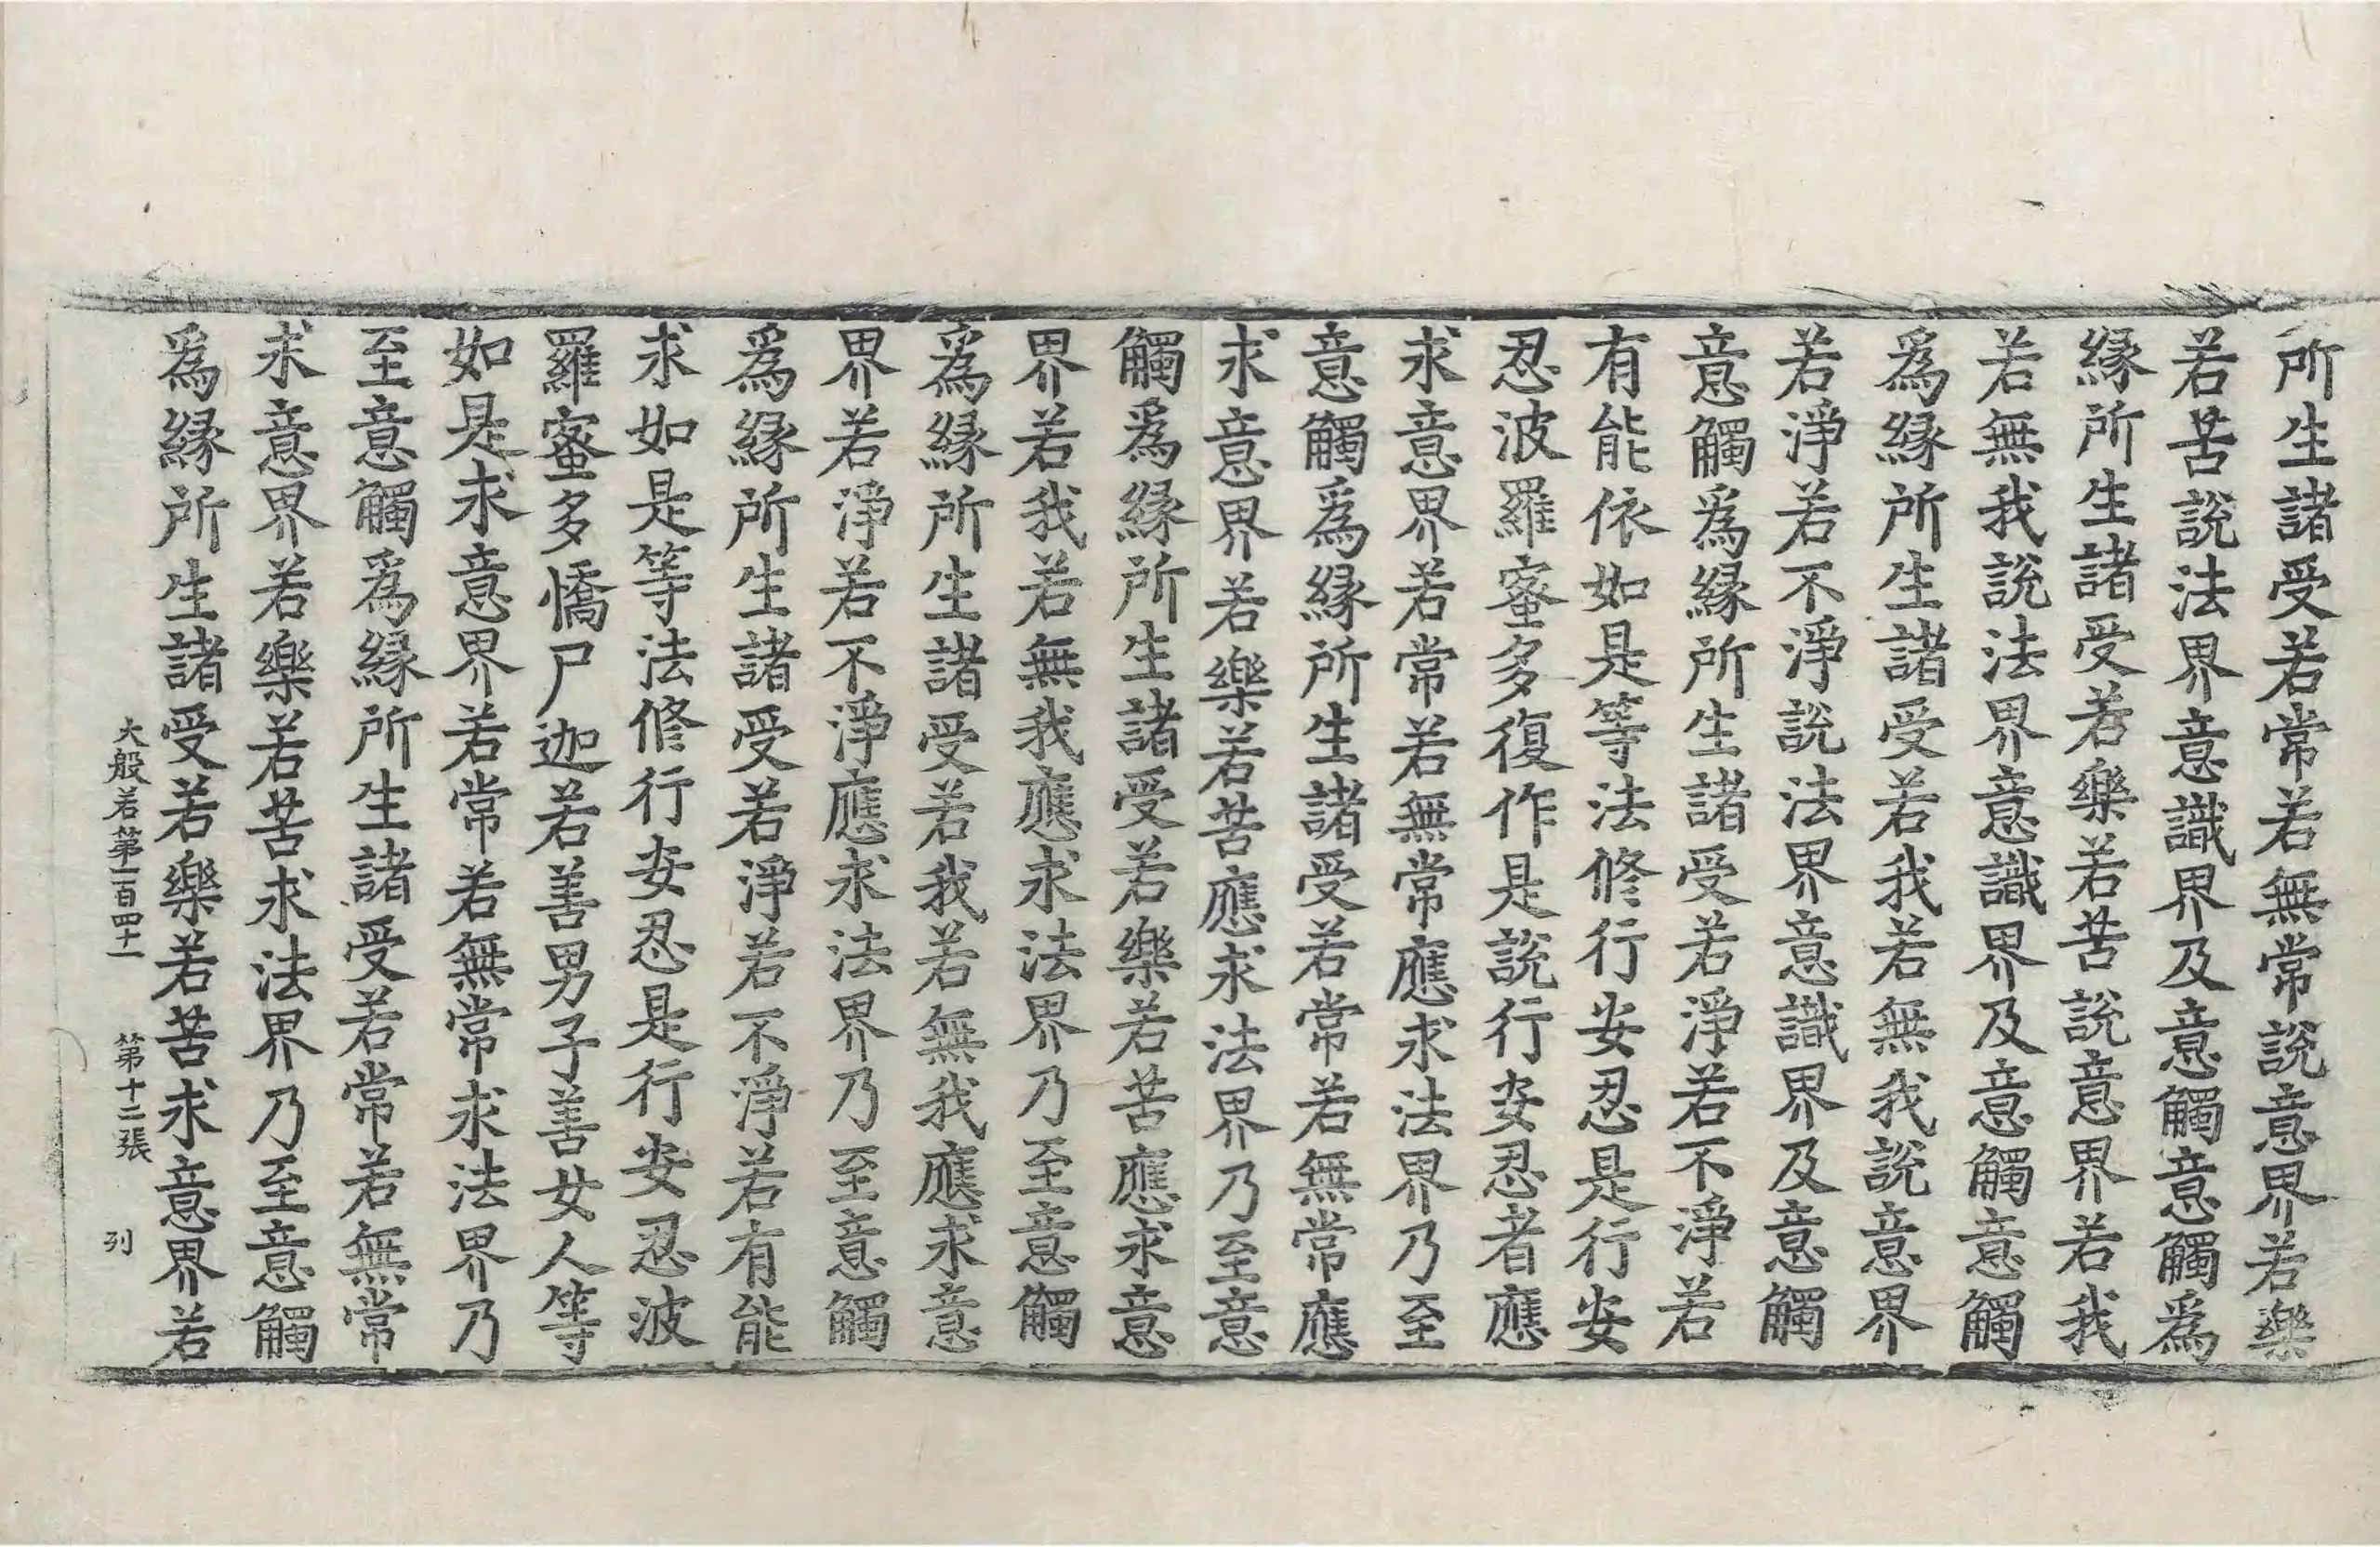 所生諸受若常若無常說意界若樂
若苦說法界意識界及意觸意觸爲
緣所生諸受若樂若苦說意界若我
若無我說法界意識界及意觸意觸
爲緣所生諸受若我若無我說意界
若淨若不淨說法界意識界及意觸
意觸爲緣所生諸受若淨若不淨若
有能依如是等法修行安忍是行安
忍波羅蜜多復作是說行安忍者應
求意界若常若無常應求法界乃至
意觸爲緣所生諸受若常若無常應
求意界若樂若苦應求法界乃至意
觸爲緣所生諸受若樂若苦應求意
界若我若無我應求法界乃至意觸
爲緣所生諸受若我若無我應求意
界若淨若不淨應求法界乃至意觸
爲緣所生諸受若淨若不淨若有能
求如是等法修行安忍是行安忍波
羅蜜多憍尸迦若善男子善女人等
如是求意界若常若無常求法界乃
至意觸爲緣所生諸受若常若無常
求意界若樂若苦求法界乃至意觸
爲緣所生諸受若樂若苦求意界若
大般若第一百四十一 第十二張 列